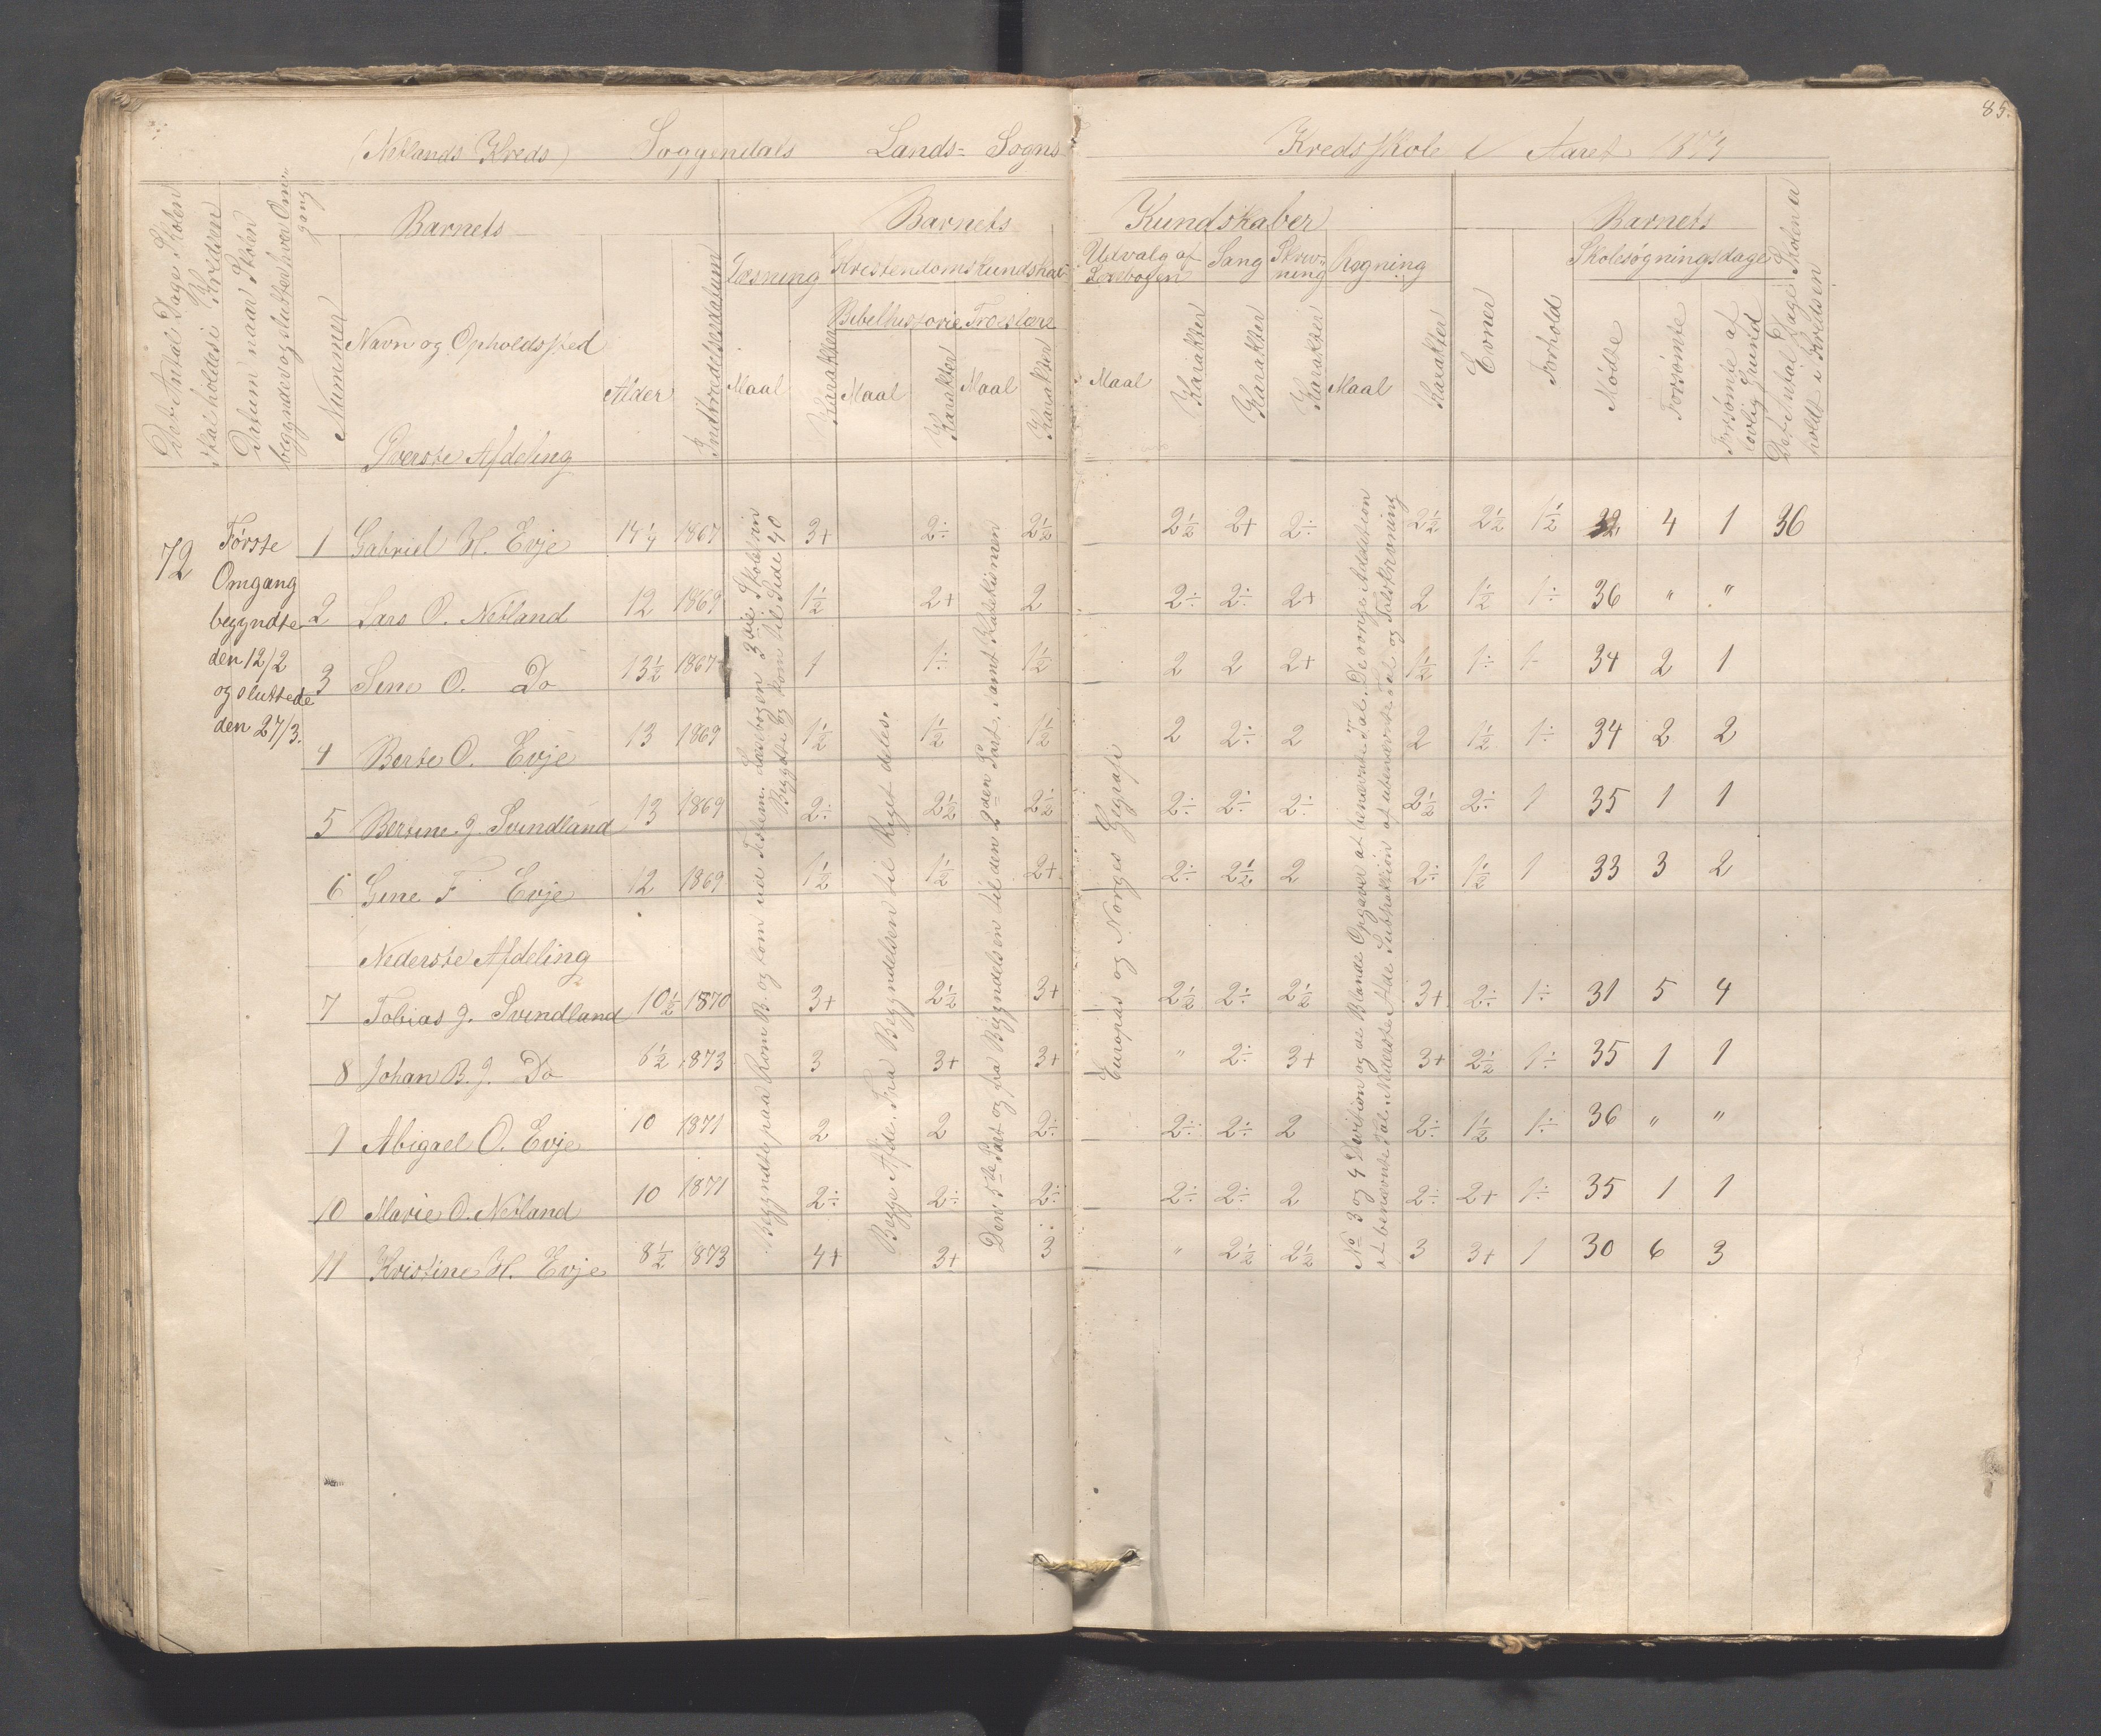 85.
(Netlands Kreds) Soggendals Lands= Sogns Kredsskole i Aaret
Det Antal Dage Skolen skal holdes i Kredsen
Datum naar Skolen begynder og slutter hver Omgang
Nummer
Barnets
Navn og Opholdssted
Alder
Indtrædelsesdatum
Barnets Kundskaber
Læsning
Kristendomskundskab
Bibelhistorie Troeslære
Maal Karakter Maal Karakter Maal Karakter
Udvalg af Læsebogen
Sang
Skrivning
Regning
Maal Karakter Karakter Karakter Maal Karakter
Evner
Forhold
Barnets
Skolesøgningsdage
Mødte
Forsømte
Forsømte af lovlig Grund
Det Antal Dage Skolen er holdt i Kredsen
Øverste Afdeling
72
Første
Omgang
begyndte
den 12/2
og sluttede
den 27/3.
1 Gabriel H. Evje 14 1/4 1867 3+ 2÷ 2 1/2 2 1/2 2+ 2÷ 2 1/2 2 1/2 1 1/2 32 4 1 36
2 Lars O. Netland 12 1869 1 1/2 2+ 2 2÷ 2÷ 2+ 2 1 1/2 1÷ 36 " "
3 Sine O. Do 13 1/2 1867 1 1÷ 1 1/2 2 2 2+ 1 1/2 1÷ 1÷ 34 2 1
4 Berte O. Evje 13 1869 1 1/2 1 1/2 1 1/2 2 2÷ 2 2 1 1/2 1÷ 34 2 2
5 Bertine J. Svindland 13 1869 2÷ 2 1/2 2 1/2 2÷ 2÷ 2÷ 2 1/2 2÷ 1 35 1 1
6 Gine F Evje 12 1869 1 1/2 1 1/2 2+ 2÷ 2 1/2 2 2÷ 1 1/2 1 33 3 2
Nederste Afdeling
7 Tobias J. Svindland 10 1/2 1870 3+ 2 1/2 3+ 2 1/2 2÷ 2 1/2 3+ 2÷ 1÷ 31 5 4
8 Johan B. J. Do 6 1/2 1873 3 3+ 3+ " 2÷ 3+ 3+ 2 1/2 1÷ 35 1 1
9 Abigael O. Evje 10 1871 2 2 2÷ 2÷ 2÷ 2 2÷ 1 1/2 1÷ 36 " "
10 Marie O. Netland 10 1871 2÷ 2÷ 2÷ 2÷ 2÷ 2 2÷ 2+ 1÷ 35 1 1
11 Kristine H. Evje 8 1/2 1873 4+ 3+ 3 " 2 1/2 2 1/2 3 3+ 1 30 6 3
Begyndte paa Rom B. og kom ud Testem. Læsebogen 3die Skoletrin
Begyndte og kom til Side 40
Begge Afde. Fra Begyndelsen til Riget deles.
Den 5te Part og fra Begyndelsen til den 2den Part, samt Katekismen
Europas og Norges Geografi
No 3 og 4 Division og de Blande Opgaver af benævnte Tal. De øvrige Addition
af benævnte Tal. Nederste Afde Subtraktion af ubenævnte Tal og Talskrivning